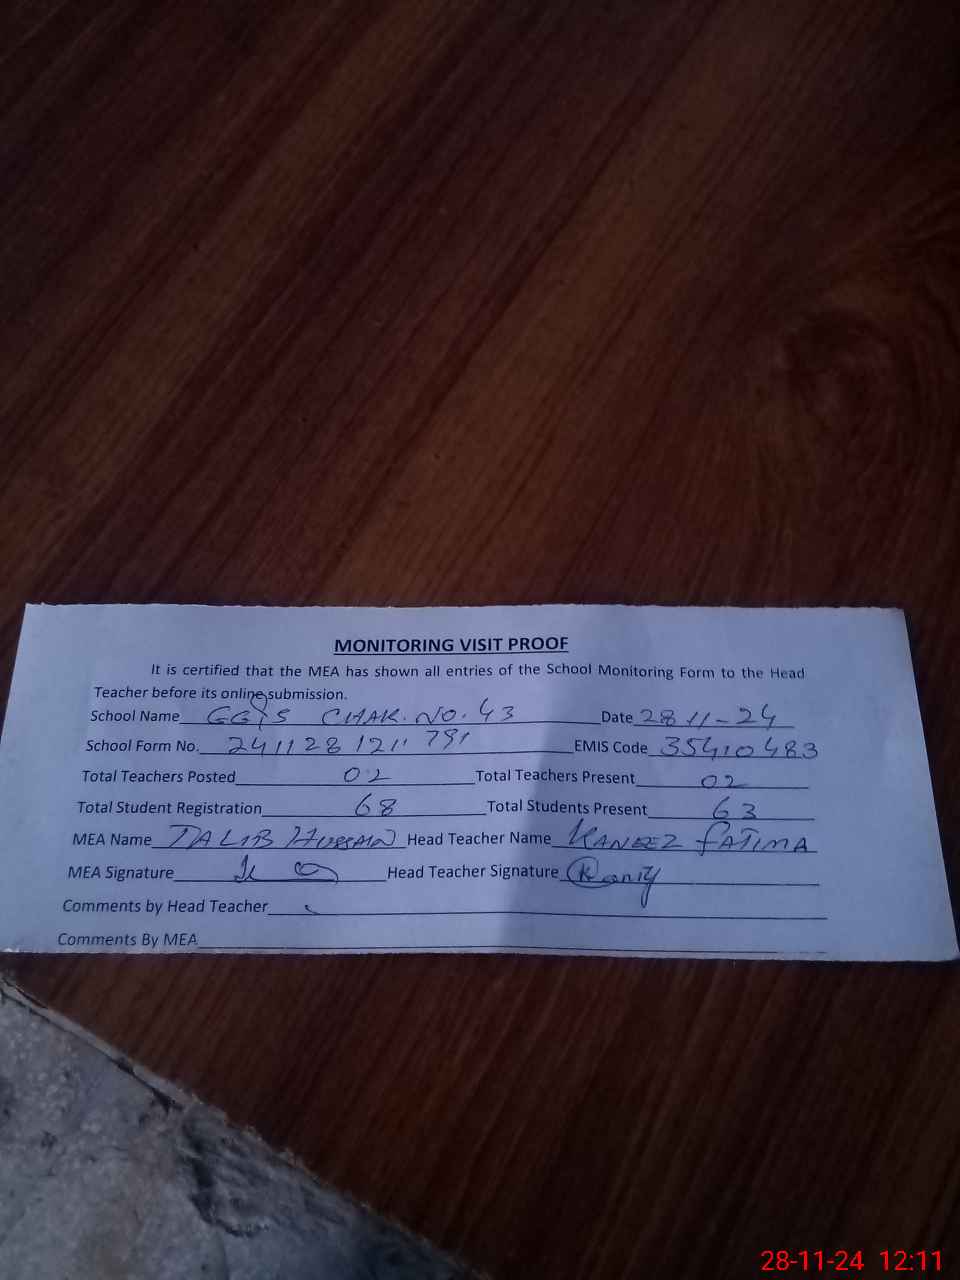 MONITORING VISIT PROOF
It is certified that the MEA has shown all entries of the School Monitoring Form to the Head
Teacher before its online submission.
School Name CHAK. NO. 43 Date 28 11-24
School Form No. 241128 1211 791 EMIS Code 35410483
Total Teachers Posted 02 Total Teachers Present 02
Total Student Registration 68 Total Students Present 63
MEA Name TALIB HUSSAIN Head Teacher Name KANEEZ FATIMA
MEA Signature Head Teacher Signature
Comments by Head Teacher
Comments By MEA
28-11-24 12:11